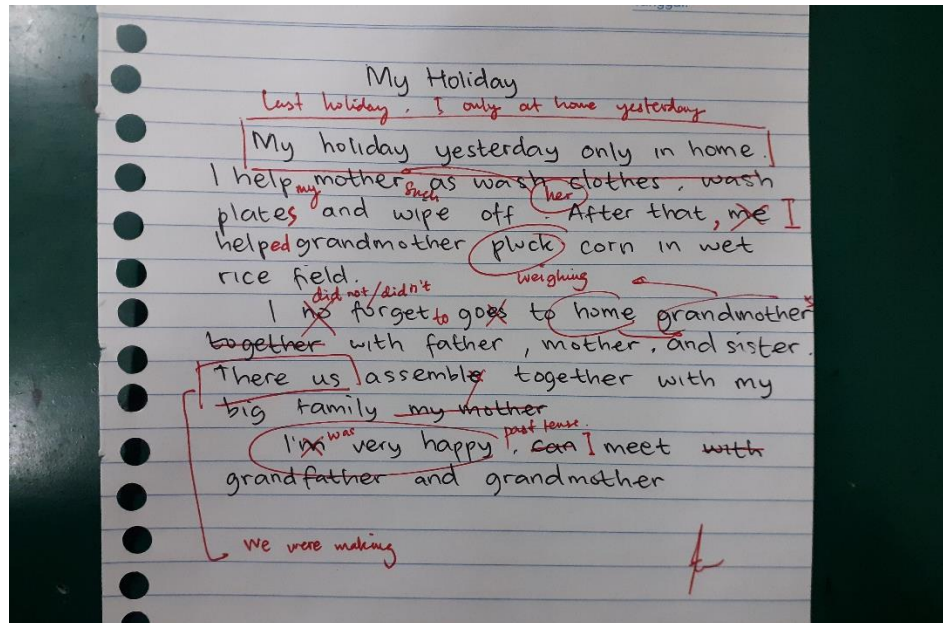 My Holiday
Last holiday, I only at home yesterday
My holiday yesterday only in home.
I help my mother such as wash clothes, wash
her
plates and wipe off. After that, me I
helped grandmother pluck corn in wet
rice field.
weighing
did not/didn't
I no forget to goes to home grandmother's
together with father, mother, and sister.
There us assemble together with my
big family my mother
past tense.
I'm was very happy, can I meet with
grandfather and grandmother
We were making